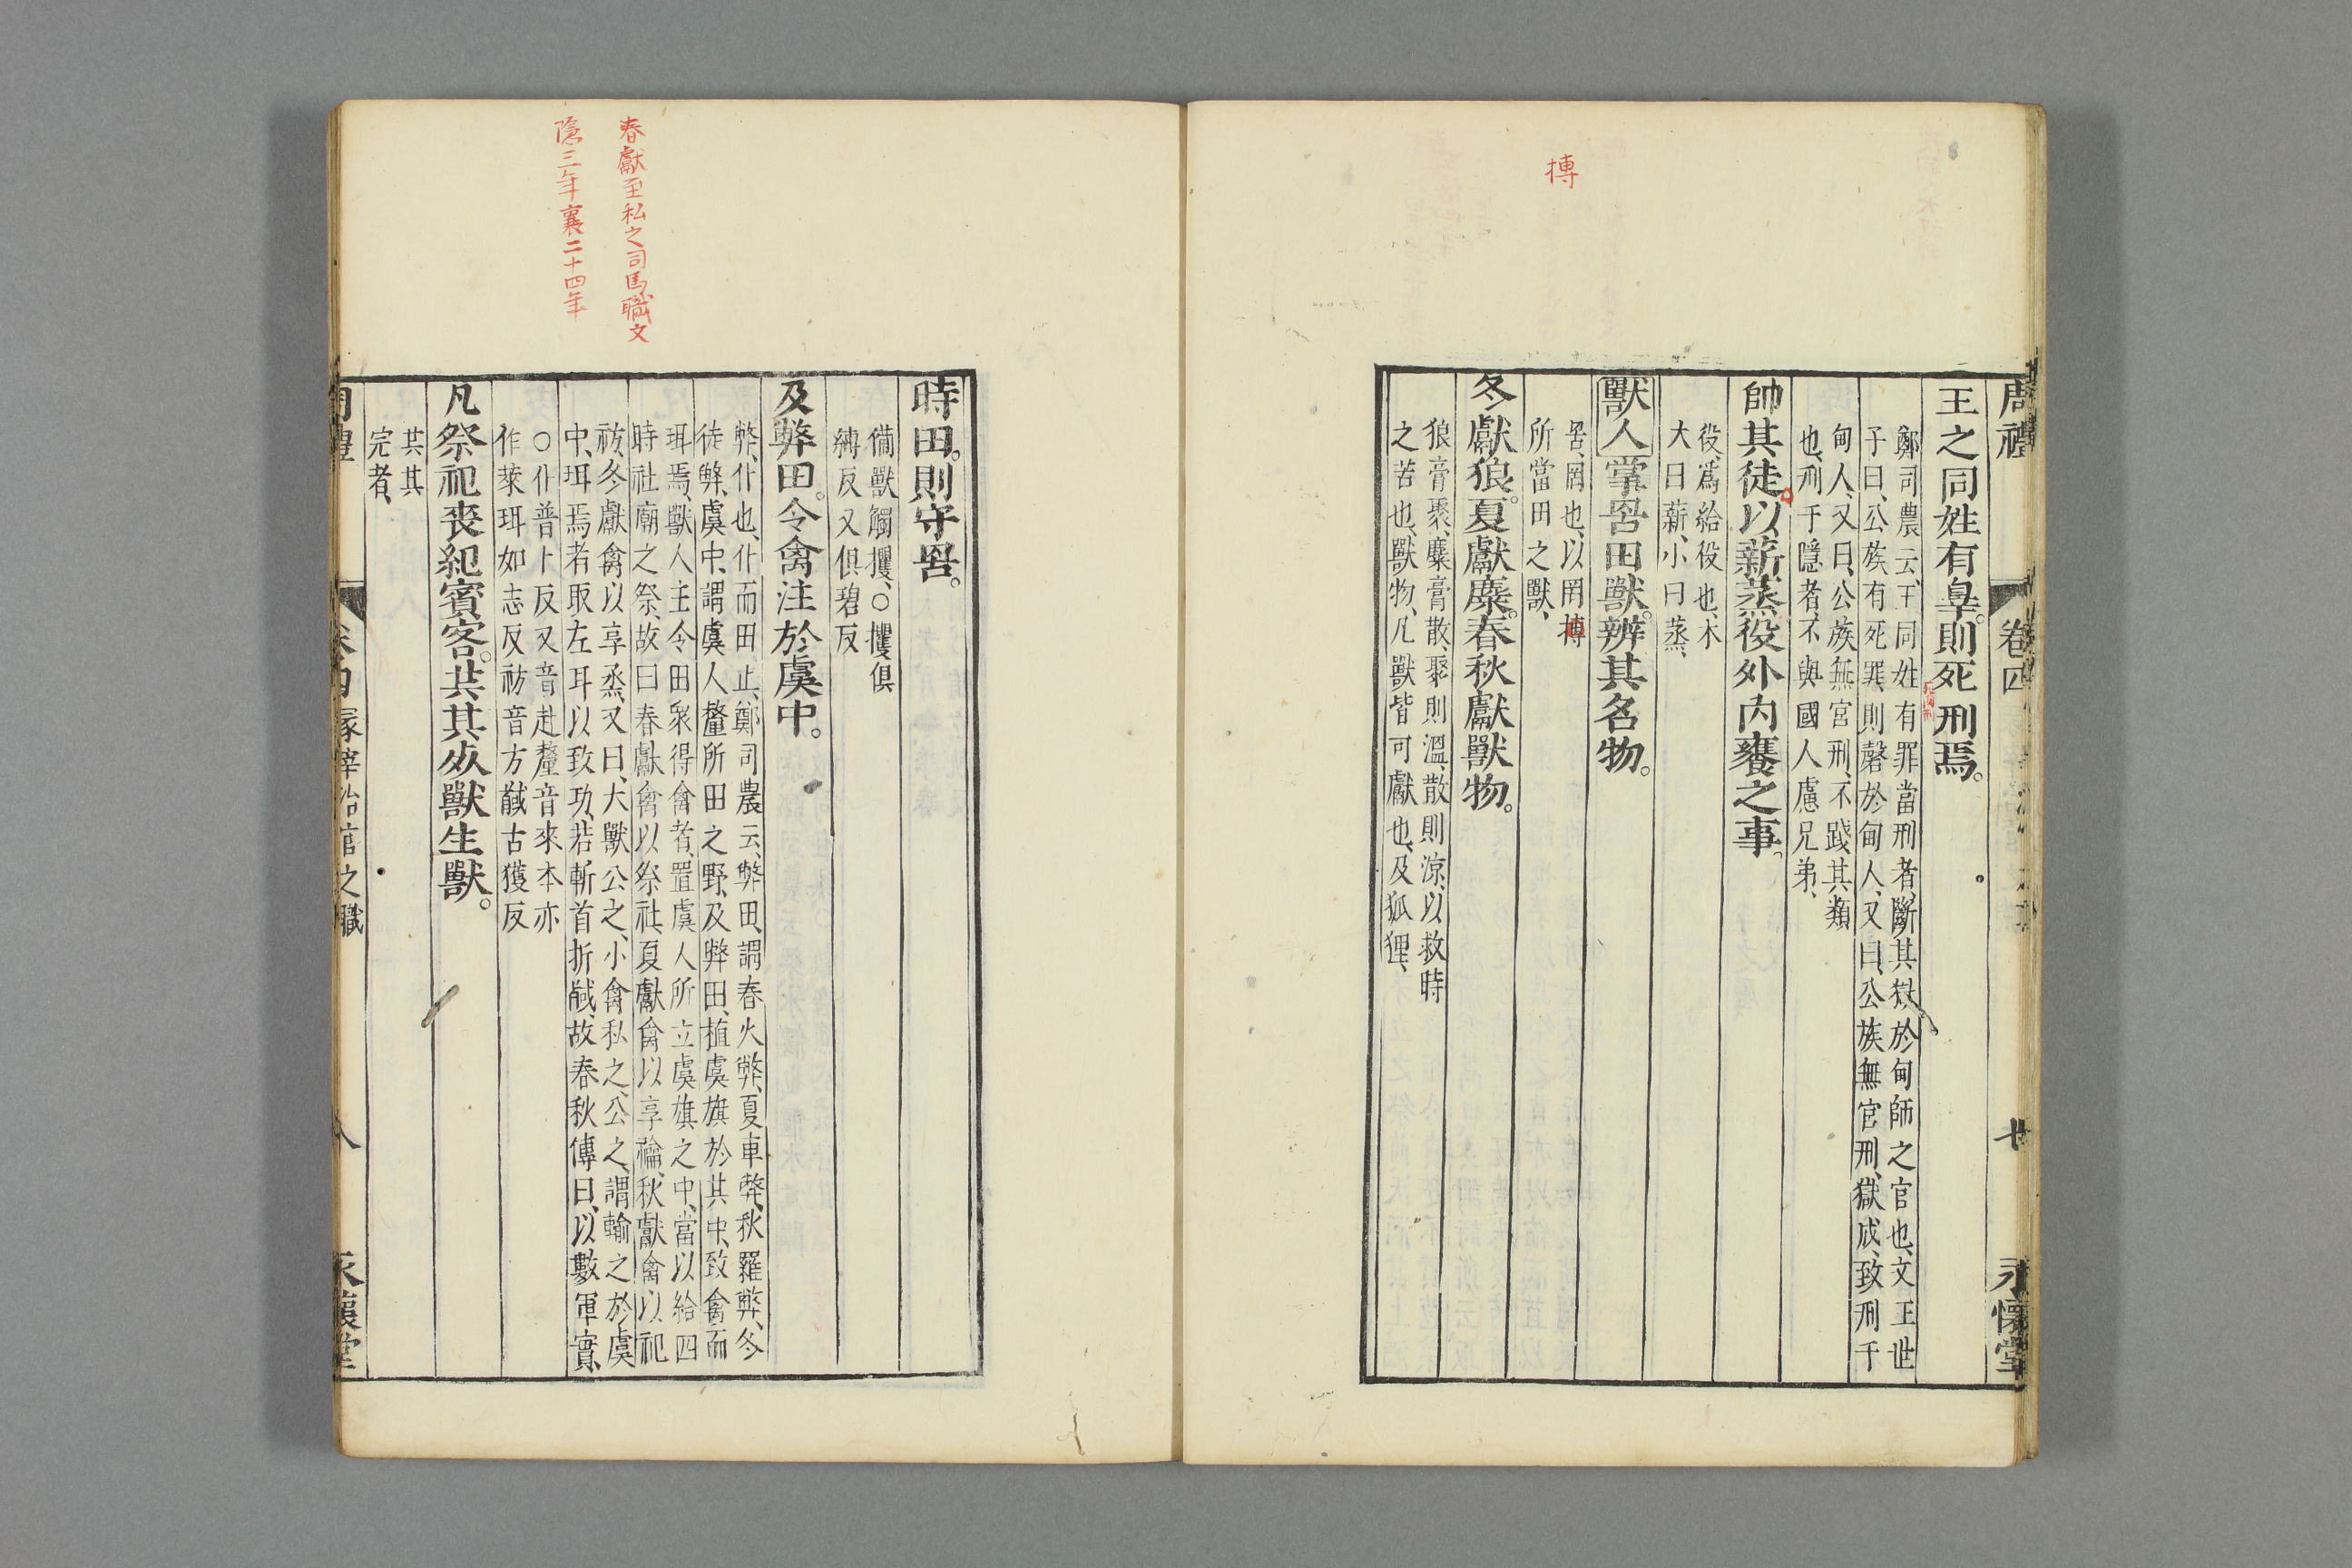 搏
周禮
卷四
永懷堂
王之同姓有辠。則死刑焉。
死作刑
鄭司農云、王同姓有罪當刑者、斷其獄於甸師之官也、文王世
子曰、公族有死罪、則磬於甸人、又曰、公族無宮刑、獄成、致刑于
甸人、又曰、公族無宮刑、不踐其類
也、刑于隱者、不與國人慮兄弟、
帥其徒以薪蒸役外內饔之事。
役、爲給役也、木
大曰薪、小曰蒸、
獸人掌罟田獸。辨其名物。
罟、罔也、以罔搏
所當田之獸、
冬獻狼。夏獻麋。春秋獻獸物。
狼膏聚、麋膏散、聚則溫、散則涼、以救時
之苦也、獸物、凡獸皆可獻也、及狐狸、
春獻至私之司馬職文
隱三年襄二十四年
時田。則守罟。
備獸觸攫、○攫俱
縛反又俱碧反
及弊田。令禽注於虞中。
弊、仆也、仆而田止、鄭司農云、弊田、謂春火弊、夏車弊、秋羅弊、冬
徒弊、虞中、謂虞人釐所田之野、及弊田、植虞旗於其中、致禽而
珥焉、獸人主令田衆得禽者、置虞人所立虞旗之中、當以給四
時社廟之祭、故曰春獻禽以祭社、夏獻禽以享禴、秋獻禽以祀
祊、冬獻禽以享烝、又曰、大獸公之、小禽私之、公之、謂輸之於虞
中、珥焉者、取左耳以致功、若斬首折馘、故春秋傳曰、以數軍實、
○仆普卜反又音赴釐音來本亦
作萊珥如志反祊音方馘古獲反
凡祭祀喪紀賓客。共其死獸生獸。
共其
完者、
周禮
卷四
冢宰治官之職
八
永懷堂